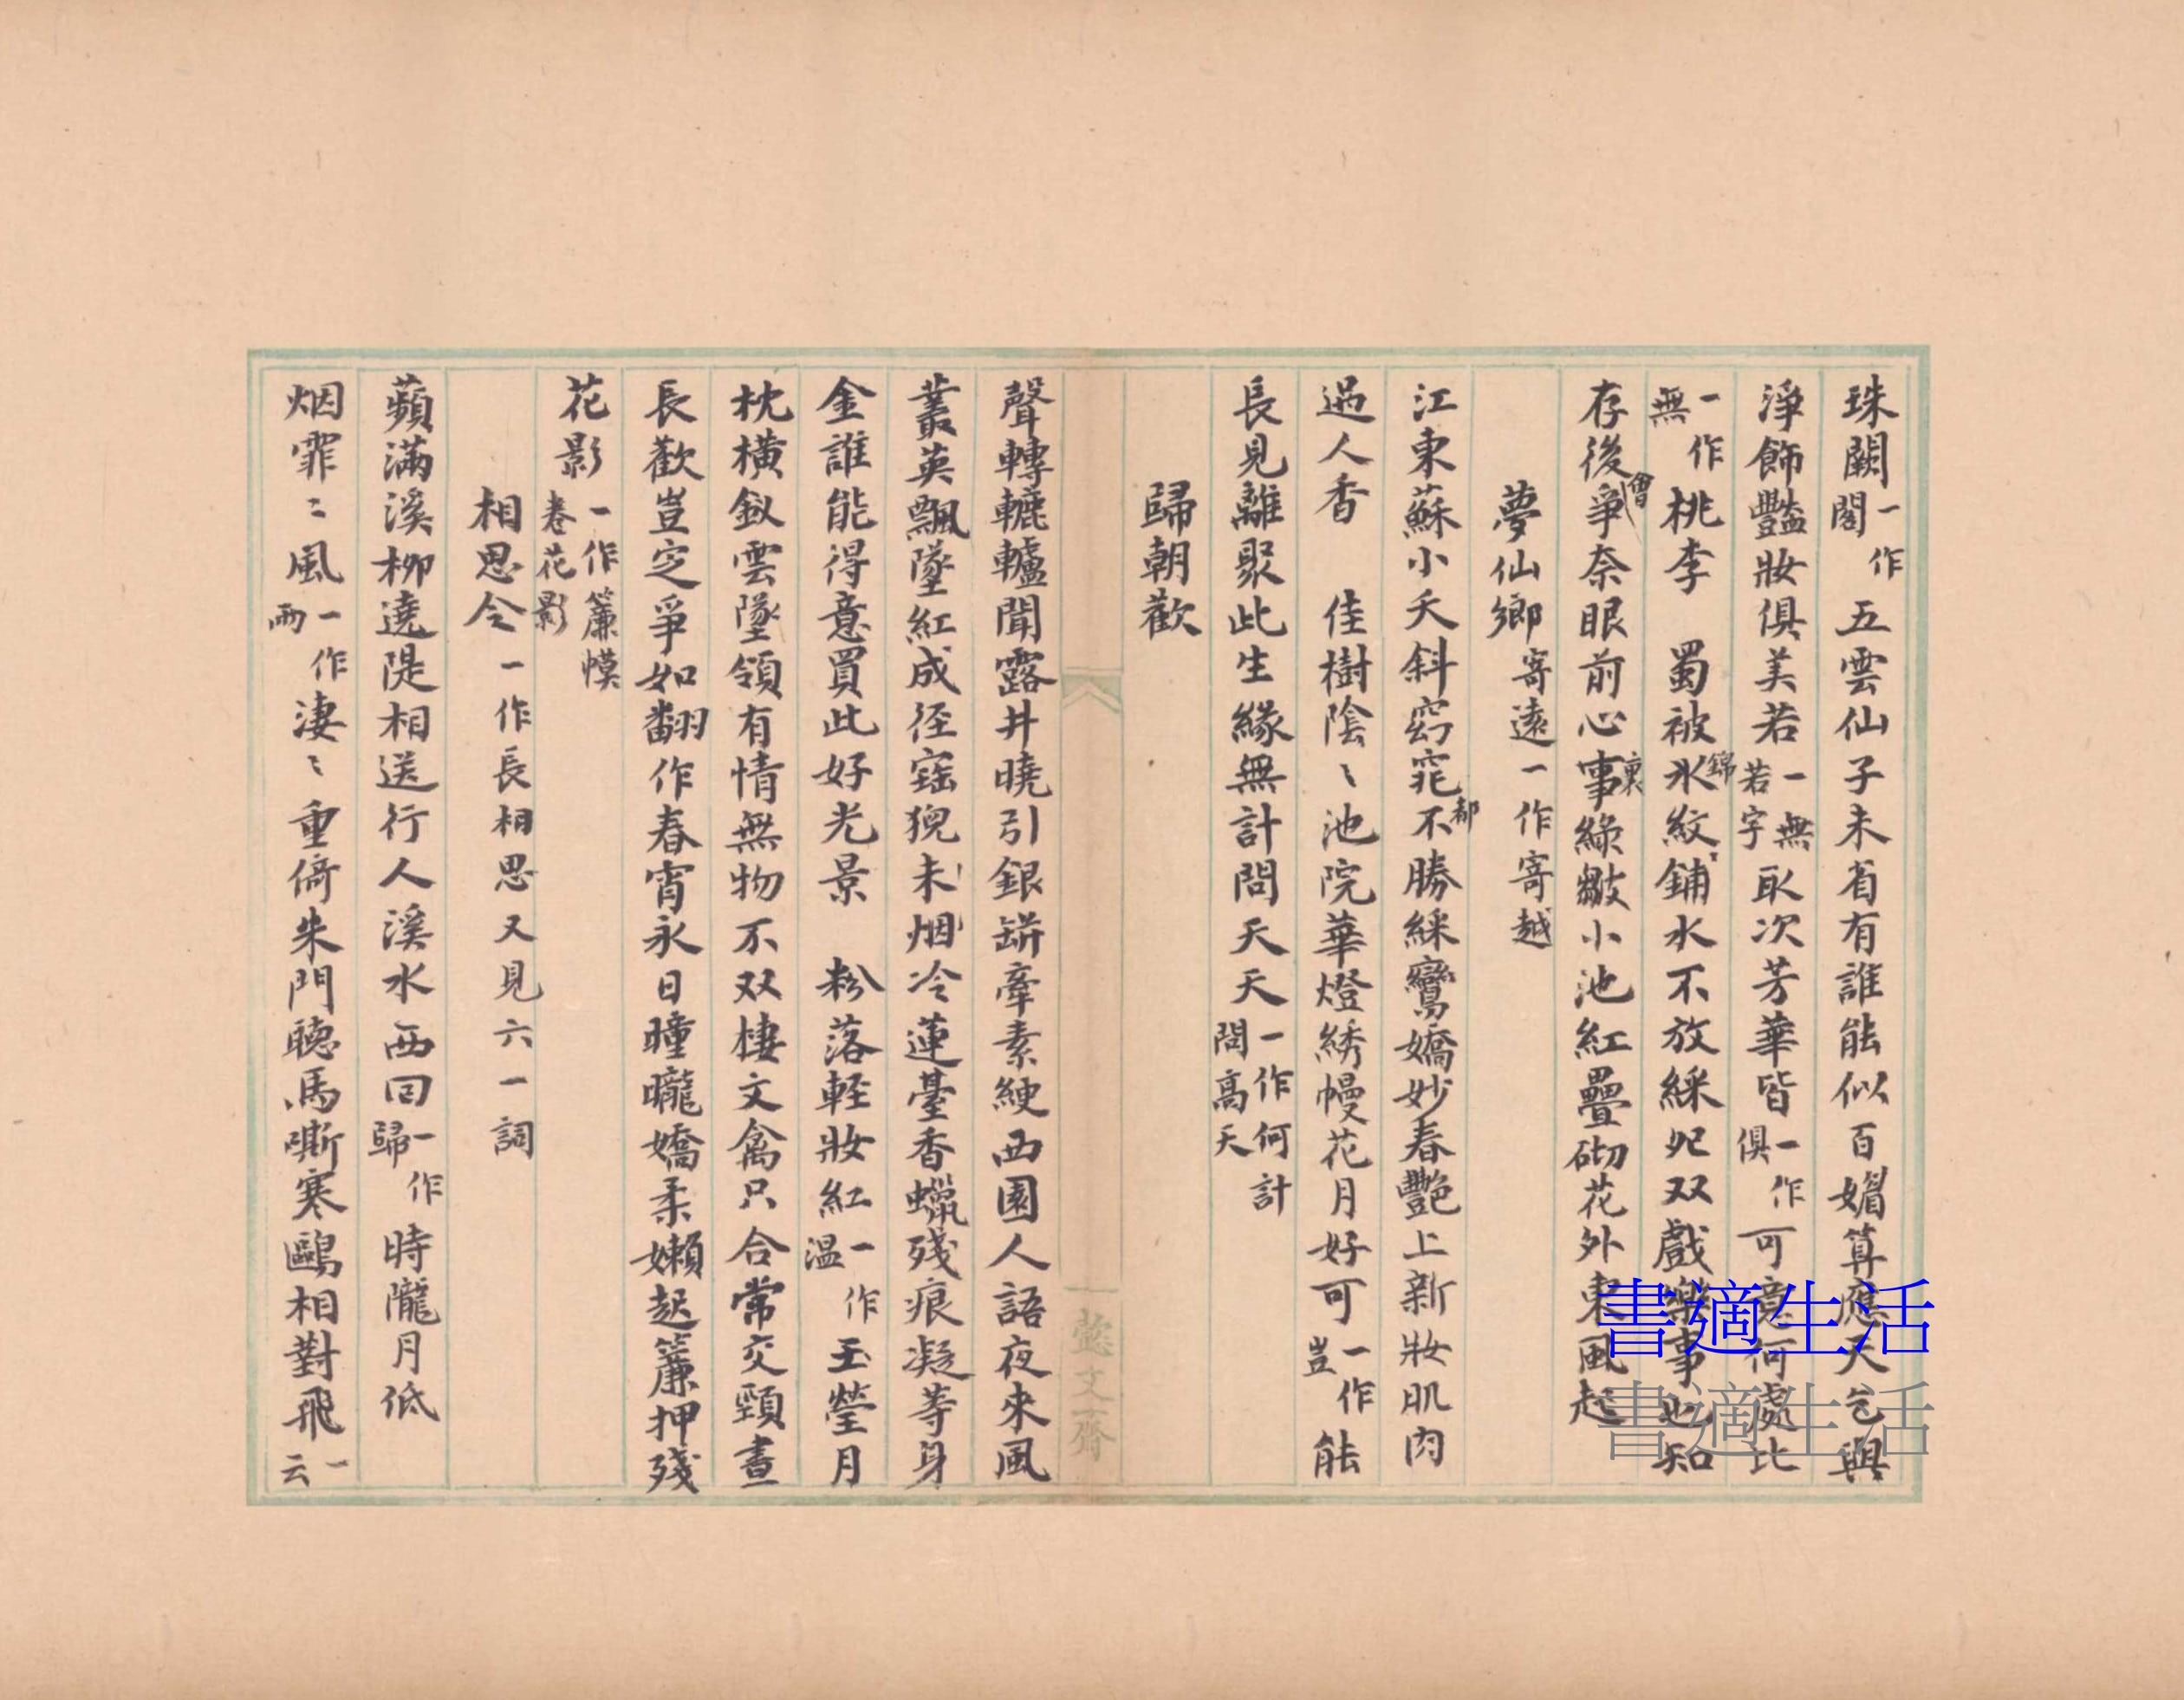 珠闕一作閣五雲仙子未省有誰能似百媚算應天乞與
淨飾豔妝俱美若一無若字取次芳華皆一作俱可意何處比
一作無桃李　蜀被錦氷紋鋪水不放綵鴛双戲樂事也知
存後爭會奈眼前心事裏綠皺小池紅疊砌花外東風起
夢仙鄉寄遠一作寄越
江東蘇小夭斜窈窕都不勝綵鸞嬌妙春艷上新妝肌肉
過人香　佳樹陰〻池院華燈綉幔花月好可一作豈能
長見離聚此生緣無計問天天一作何計問高天
歸朝歡
聲轉轆轤聞露井曉引銀缾牽素綆西園人語夜來風
叢英飄墜紅成徑寶猊未烟冷蓮臺香蠟殘痕凝等身
金誰能得意買此好光景　粉落輕妝紅一作溫玉瑩月
枕橫釵雲墜領有情無物不双棲文禽只合常交頸晝
長歡豈定爭如翻作春宵永日曈曨嬌柔嬾起簾押殘
花影一作簾幙卷花影
相思令一作長相思又見六一詞
蘋滿溪柳遶隄相送行人溪水西囘一作歸時隴月低
烟霏〻風一作雨淒〻重倚朱門聽馬嘶寒鷗相對飛一云
懿文齋
書適生活
書適生活